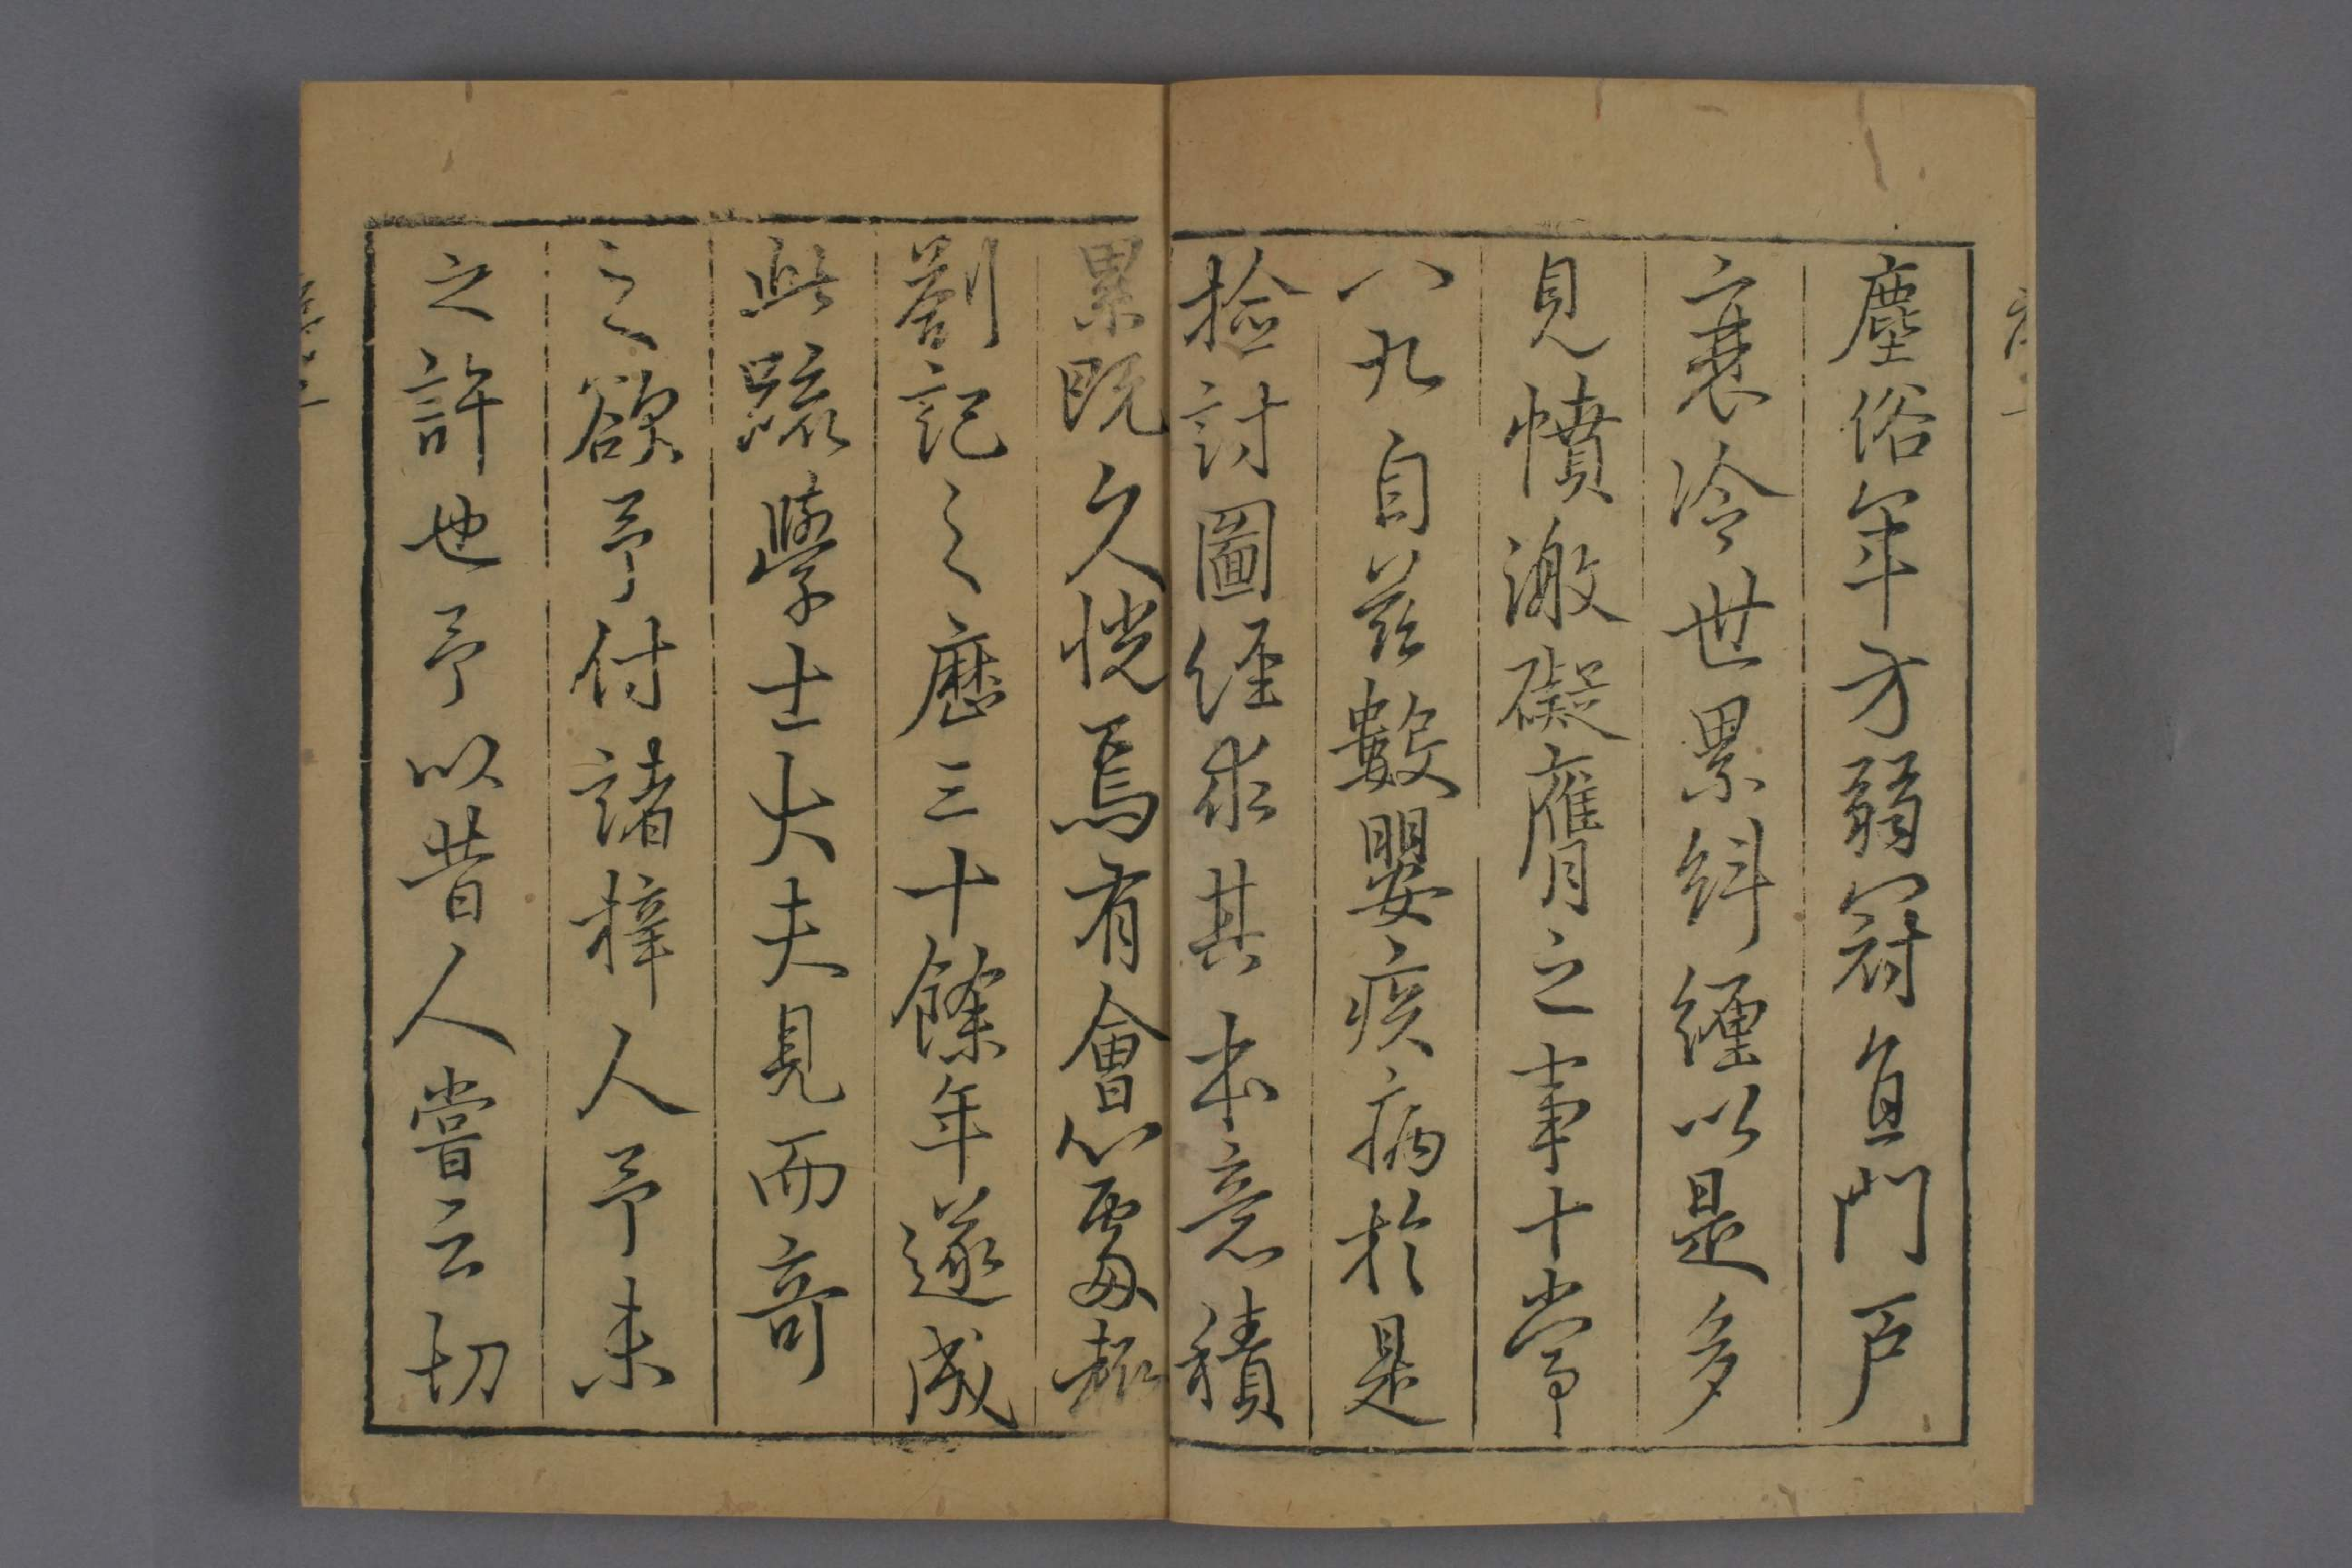 塵俗年方弱冠負門戶
衰冷世累糾纏以是多
見憤激礙膺之事十常
八九自茲數嬰疾病於是
撿討圖經求其本意積
累既久恍焉有會心處輒
劄記之歷三十餘年遂成
此疏學士大夫見而奇
之欲予付諸梓人予未
之許也予以昔人嘗云切